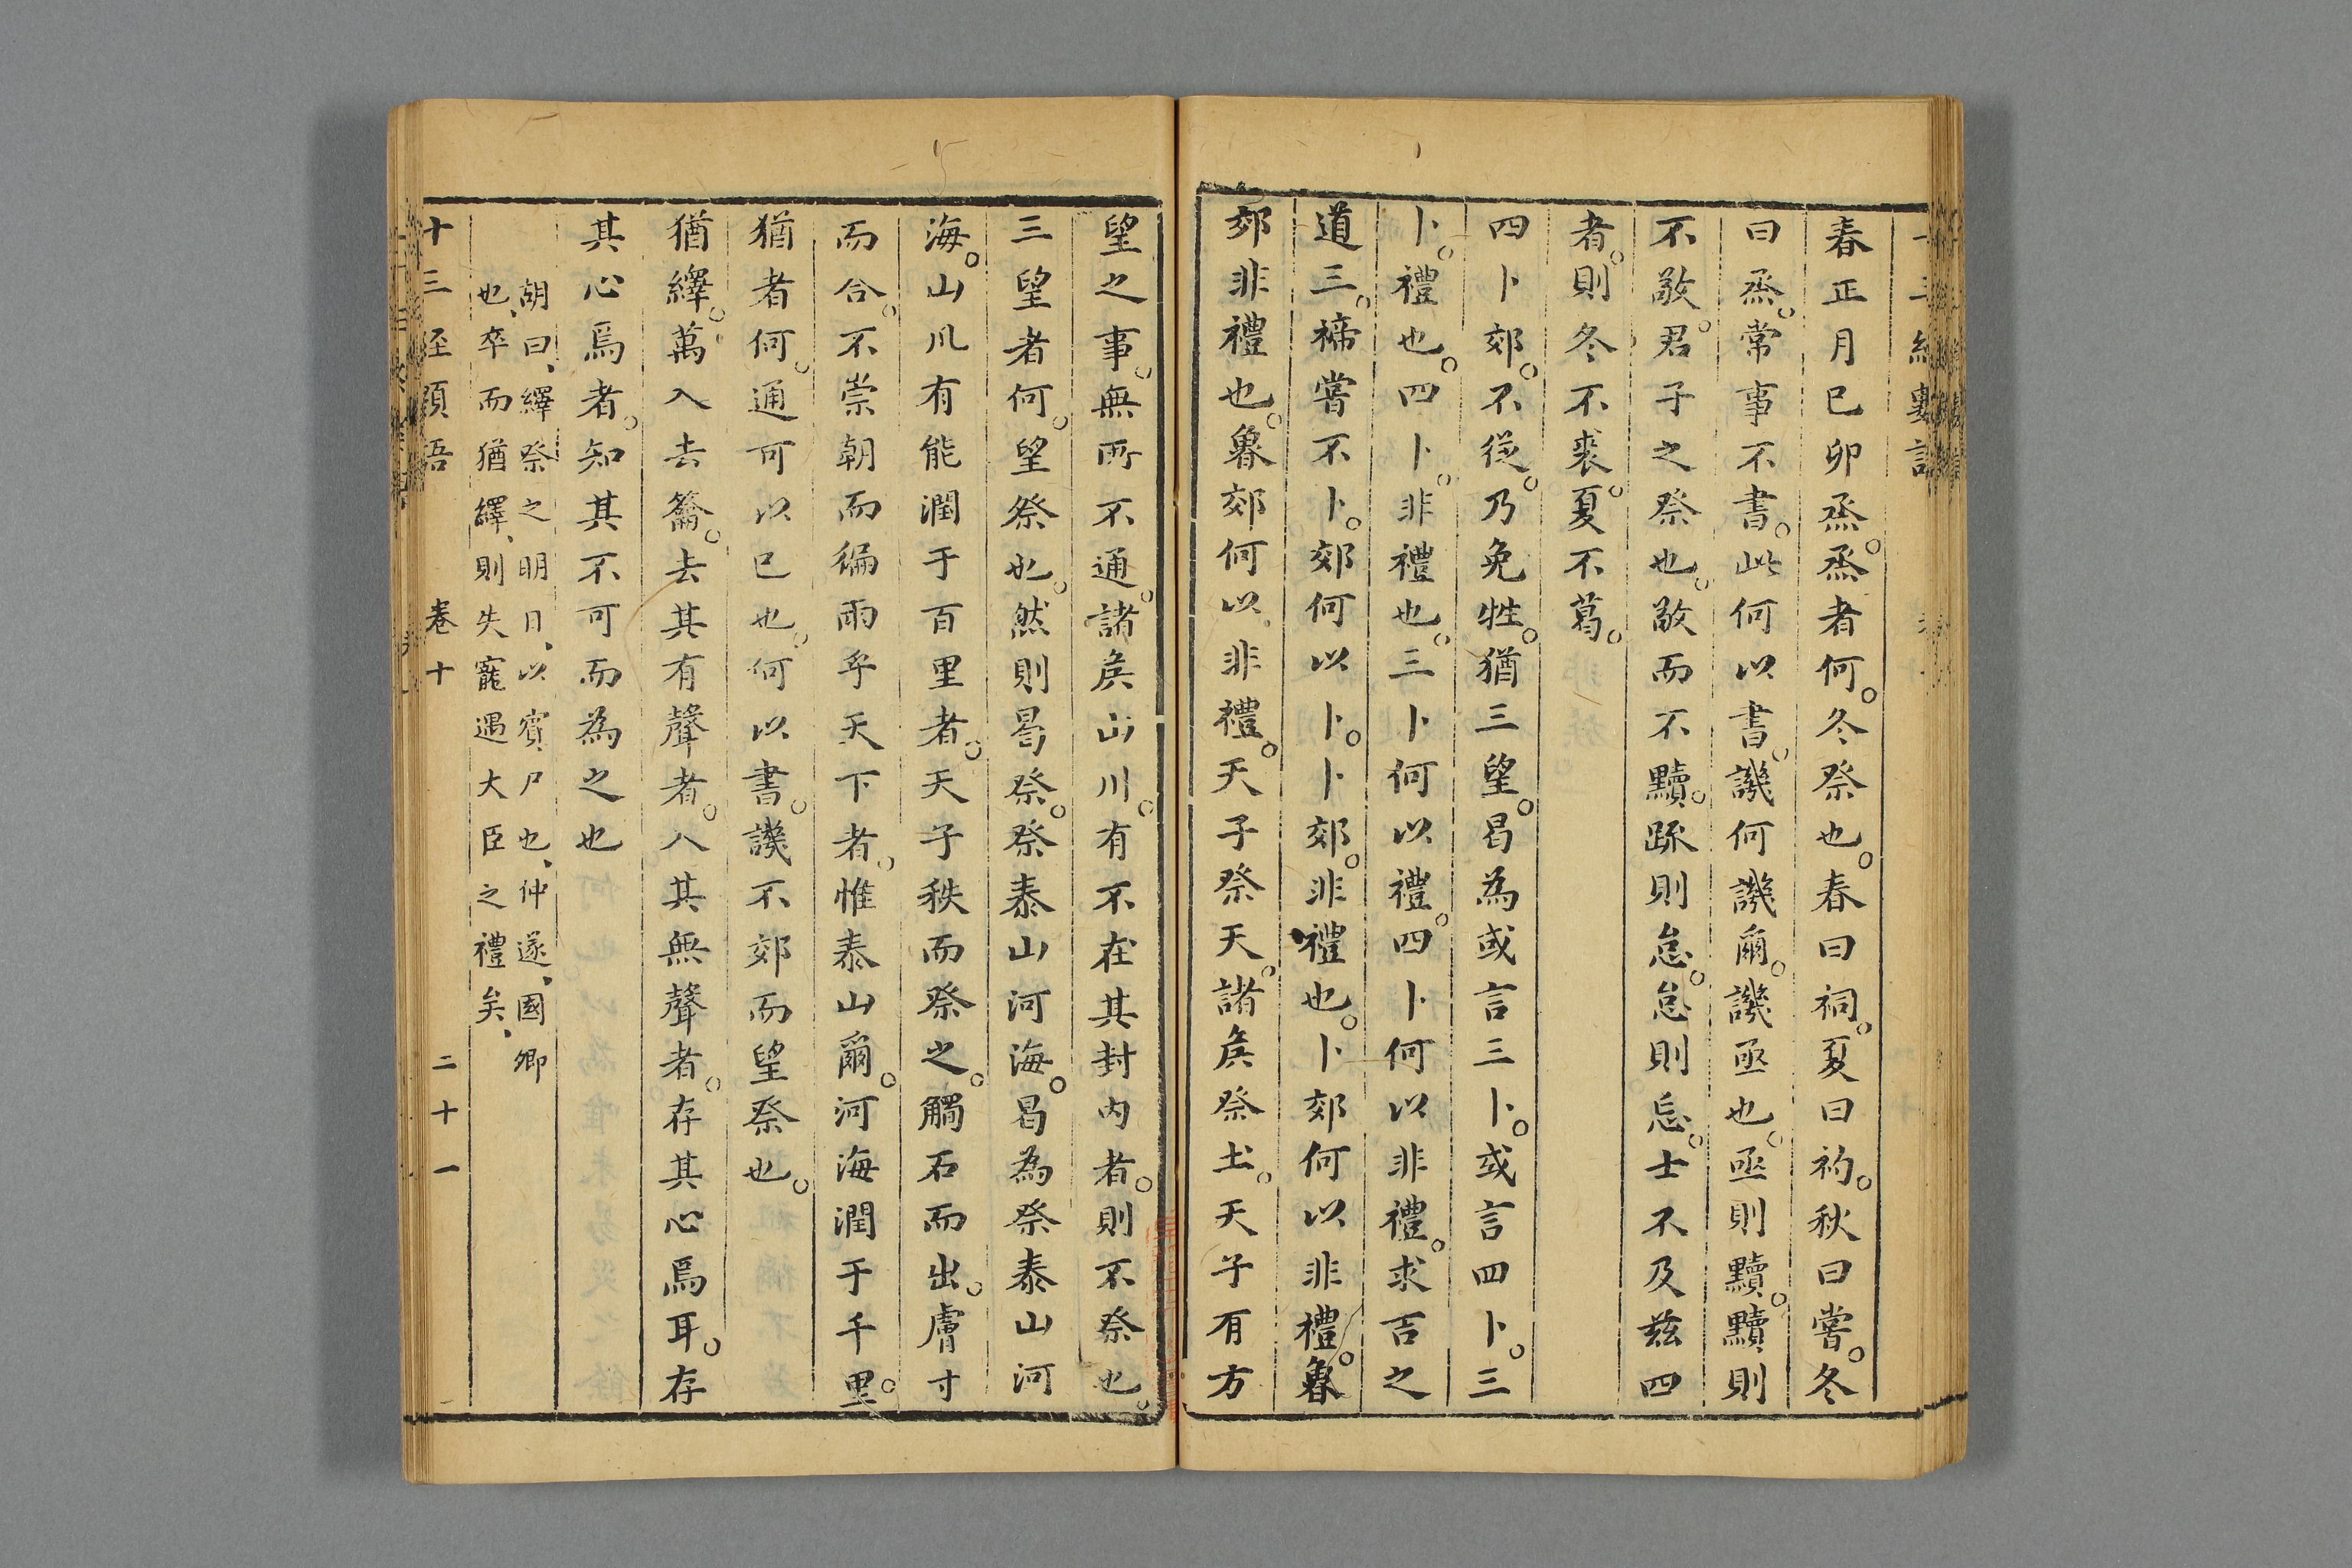 春正月巳卯烝。烝者何。冬祭也。春曰祠。夏曰礿。秋曰嘗。冬
曰烝。常事不書。此何以書。譏何譏爾。譏亟也。亟則黷。黷則
不敬。君子之祭也。敬而不黷。䟽則怠。怠則忘。士不及茲四
者。則冬不裘。夏不葛。
四卜郊。不從。乃免牲。猶三望。曷為或言三卜。或言四卜。三
卜。禮也。四卜。非禮也。三卜何以禮。四卜何以非禮。求吉之
道三。禘嘗不卜。郊何以卜。卜郊。非禮也。卜郊何以非禮。魯
郊非禮也。魯郊何以非禮。天子祭天。諸矦祭土。天子有方
望之事。無所不通。諸矦山川。有不在其封內者。則不祭也。
三望者何。望祭也。然則曷祭。祭泰山河海。曷為祭泰山河
海。山川有能潤于百里者。天子秩而祭之。觸石而出。膚寸
而合。不崇朝而徧雨乎天下者。惟泰山爾。河海潤于千里。
猶者何。通可以已也。何以書。譏不郊而望祭也。
猶繹。萬入去籥。去其有聲者。入其無聲者。存其心焉耳。存
其心焉者。知其不可而為之也
胡曰、繹祭之明日、以賓尸也、仲遂、國卿
也、卒而猶繹、則失寵遇大臣之禮矣、
十三經 卷十 二十一